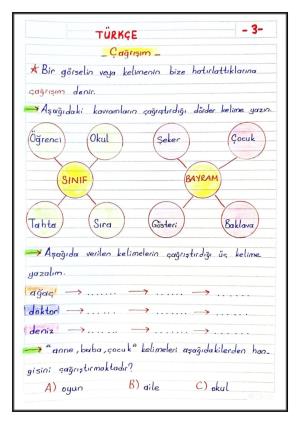 TÜRKÇE
- 3 -
- Çağrışım -
★ Bir görselin veya kelimenin bize hatırlattıklarına
çağrışım denir.
→ Aşağıdaki kavramların çağrıştırdığı dörder kelime yazın.
Öğrenci Okul Şeker Çocuk
SINIF BAYRAM
Tahta Sıra Gösteri Baklava
→ Aşağıda verilen kelimelerin çağrıştırdığı üç kelime
yazalım.
ağaç → ....... → ....... → .......
doktor → ....... → ....... → .......
deniz → ....... → ....... → .......
→ "anne, baba, çocuk" kelimeleri aşağıdakilerden han-
gisini çağrıştırmaktadır?
A) oyun B) aile C) okul